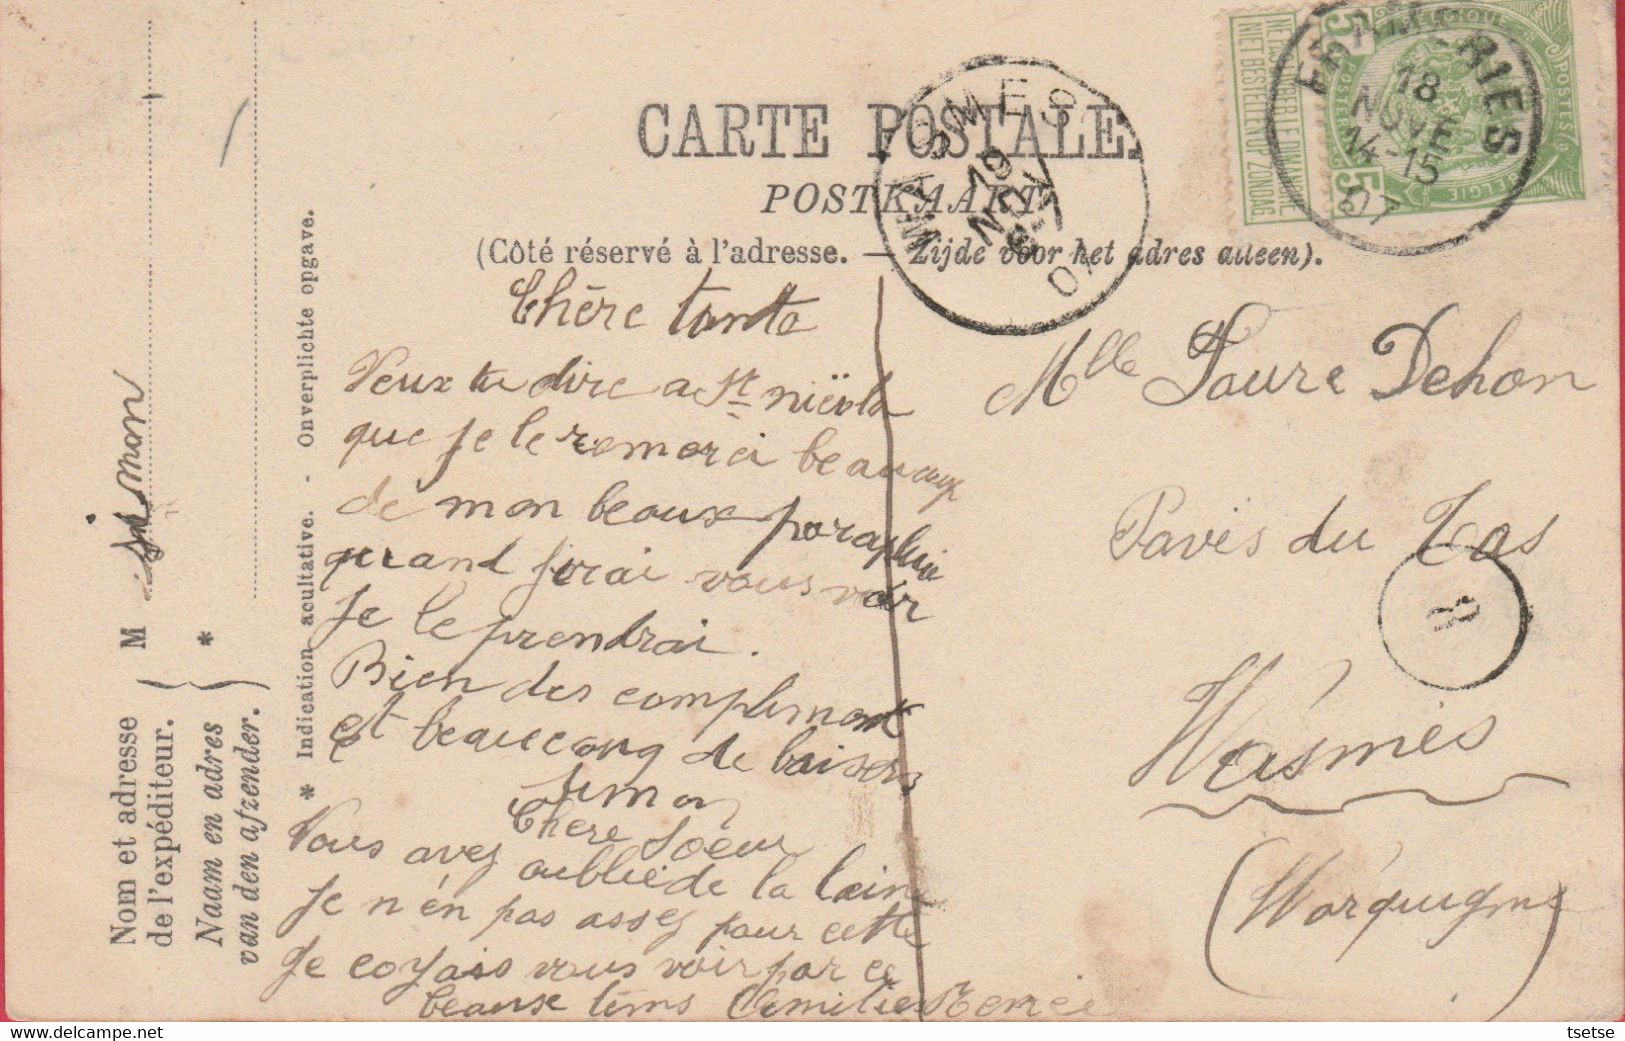 CARTE POSTALE.
POSTKAART
(Côté réservé à l'adresse. — Zijde voor het adres alleen).
BELGIQUE
POSTES
BELGIE
5
FRAMERIES
18
NOVE
14-15
07
WASMES
19
NOV
07
Nom et adresse
de l'expéditeur.
Naam en adres
van den afzender.
M Simon
* Indication acultative. - Onverplichte opgave.
Chère tante
Veux tu dire a St niëola
que je le remerci beaucoup
de mon beaux parapluie
quand j'irai vous voir
Je le prendrai.
Bien des compliment
et beaucoup de baisers
Simon
Chere Soeur
Vous avez oubliéde la laine
Je n'én pas assez pour cette
Je coyais vous voir par ce
beaux téms Emilie Renée
Mlle Laure Dehon
Pavés du Tas
Wasmes
(Warquignies
tsetse